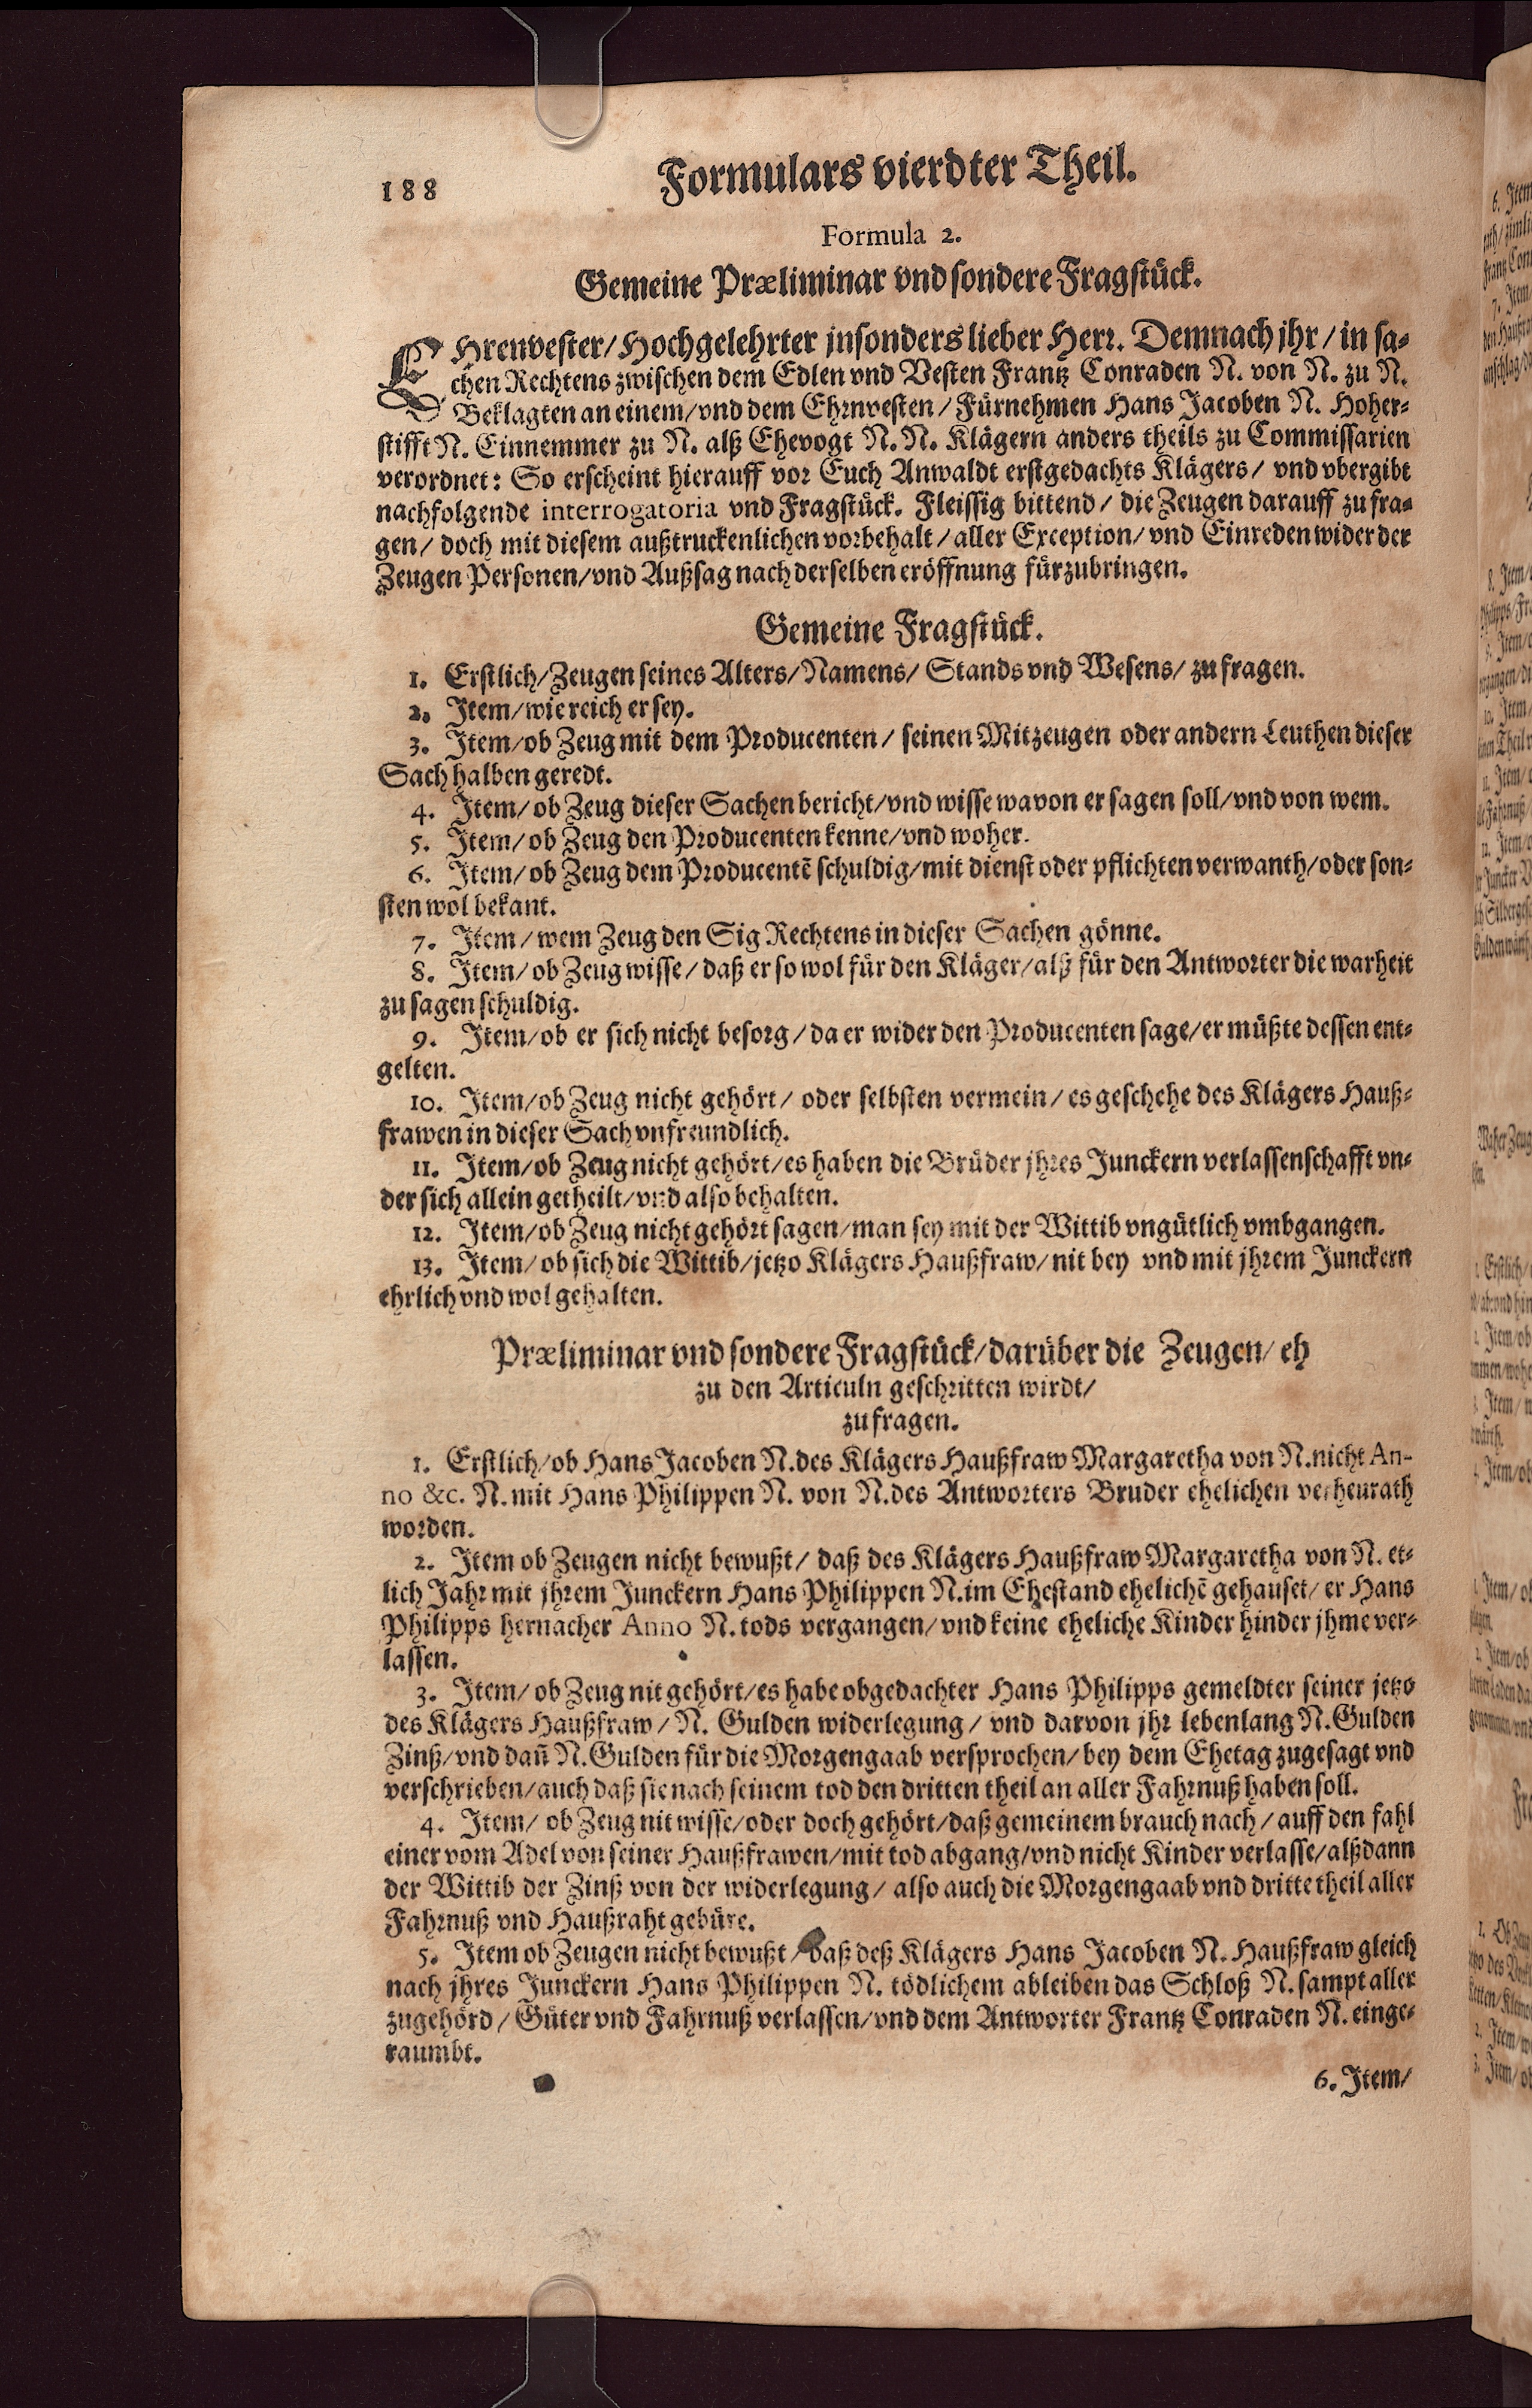 188
Formulars vierdter Theil.
Formula 2.
Gemeine Præliminar vnd sondere Fragstück.
EHrenvester/Hochgelehrter jnsonders lieber Herr. Demnach jhr/in sa-
chen Rechtens zwischen dem Edlen vnd Vesten Frantz Conraden N. von N. zu N.
Beklagten an einem/vnd dem Ehrnvesten/Fürnehmen Hans Jacoben N. Hoher-
stifft N. Einnemmer zu N. alß Ehevogt N. N. Klägern anders theils zu Commissarien
verordnet: So erscheint hierauff vor Euch Anwaldt erstgedachts Klägers/ vnd vbergibt
nachfolgende interrogatoria vnd Fragstück. Fleissig bittend/ die Zeugen darauff zu fra-
gen/ doch mit diesem außtruckenlichen vorbehalt/aller Exception/ vnd Einreden wider der
Zeugen Personen/vnd Außsag nach derselben eröffnung fürzubringen.
Gemeine Fragstück.
1. Erstlich/Zeugen seines Alters/Namens/ Stands vnd Wesens/ zu fragen.
2. Item/wie reich er sey.
3. Item/ob Zeug mit dem Producenten/ seinen Mitzeugen oder andern Leuthen dieser
Sach halben geredt.
4. Item/ob Zeug dieser Sachen bericht/vnd wisse wavon er sagen soll/vnd von wem.
5. Item/ob Zeug den Producenten kenne/vnd woher.
6. Item/ob Zeug dem Producentē schuldig/mit dienst oder pflichten verwanth/oder son-
sten wol bekant.
7. Item/wem Zeug den Sig Rechtens in dieser Sachen gönne.
8. Item/ob Zeug wisse/daß er so wol für den Kläger/alß für den Antworter die warheit
zu sagen schuldig.
9. Item/ob er sich nicht besorg/da er wider den Producenten sage/er müßte dessen ent-
gelten.
10. Item/ob Zeug nicht gehört/ oder selbsten vermein/es geschehe des Klägers Hauß-
frawen in dieser Sach vnfreundlich.
11. Item/ob Zeug nicht gehört/es haben die Brüder jhres Junckern verlassenschafft vn-
der sich allein getheilt/vnd also behalten.
12. Item/ob Zeug nicht gehört sagen/man sey mit der Wittib vngütlich vmbgangen.
13. Item/ob sich die Wittib/jetzo Klägers Haußfraw/nit bey vnd mit jhrem Junckern
ehrlich vnd wol gehalten.
Præliminar vnd sondere Fragstück/darüber die Zeugen/eh
zu den Articuln geschritten wirdt/
zu fragen.
1. Erstlich/ob Hans Jacoben N. des Klägers Haußfraw Margaretha von N. nicht An-
no &c. N. mit Hans Philippen N. von N. des Antworters Bruder ehelichen verheurath
worden.
2. Item ob Zeugen nicht bewußt/ daß des Klägers Haußfraw Margaretha von N. et-
lich Jahr mit jhrem Junckern Hans Philippen N. im Ehestand ehelichē gehauset/er Hans
Philipps hernacher Anno N. tods vergangen/vnd keine eheliche Kinder hinder jhme ver-
lassen.
3. Item/ob Zeug nit gehört/es habe obgedachter Hans Philipps gemeldter seiner jetzo
des Klägers Haußfraw/N. Gulden widerlegung/ vnd darvon jhr lebenlang N. Gulden
Zinß/vnd dañ N. Gulden für die Morgengaab versprochen/bey dem Ehetag zugesagt vnd
verschrieben/auch daß sie nach seinem tod den dritten theil an aller Fahrnuß haben soll.
4. Item/ ob Zeug nit wisse/oder doch gehört/daß gemeinem brauch nach/auff den fahl
einer vom Adel von seiner Haußfrawen/mit tod abgang/vnd nicht Kinder verlasse/alßdann
der Wittib der Zinß von der widerlegung/ also auch die Morgengaab vnd dritte theil aller
Fahrnuß vnd Haußraht gebüre.
5. Item ob Zeugen nicht bewußt/daß deß Klägers Hans Jacoben N. Haußfraw gleich
nach jhres Junckern Hans Philippen N. tödlichem ableiben das Schloß N. sampt aller
zugehörd/Güter vnd Fahrnuß verlassen/vnd dem Antworter Frantz Conraden N. einge-
raumbt.
6. Item/